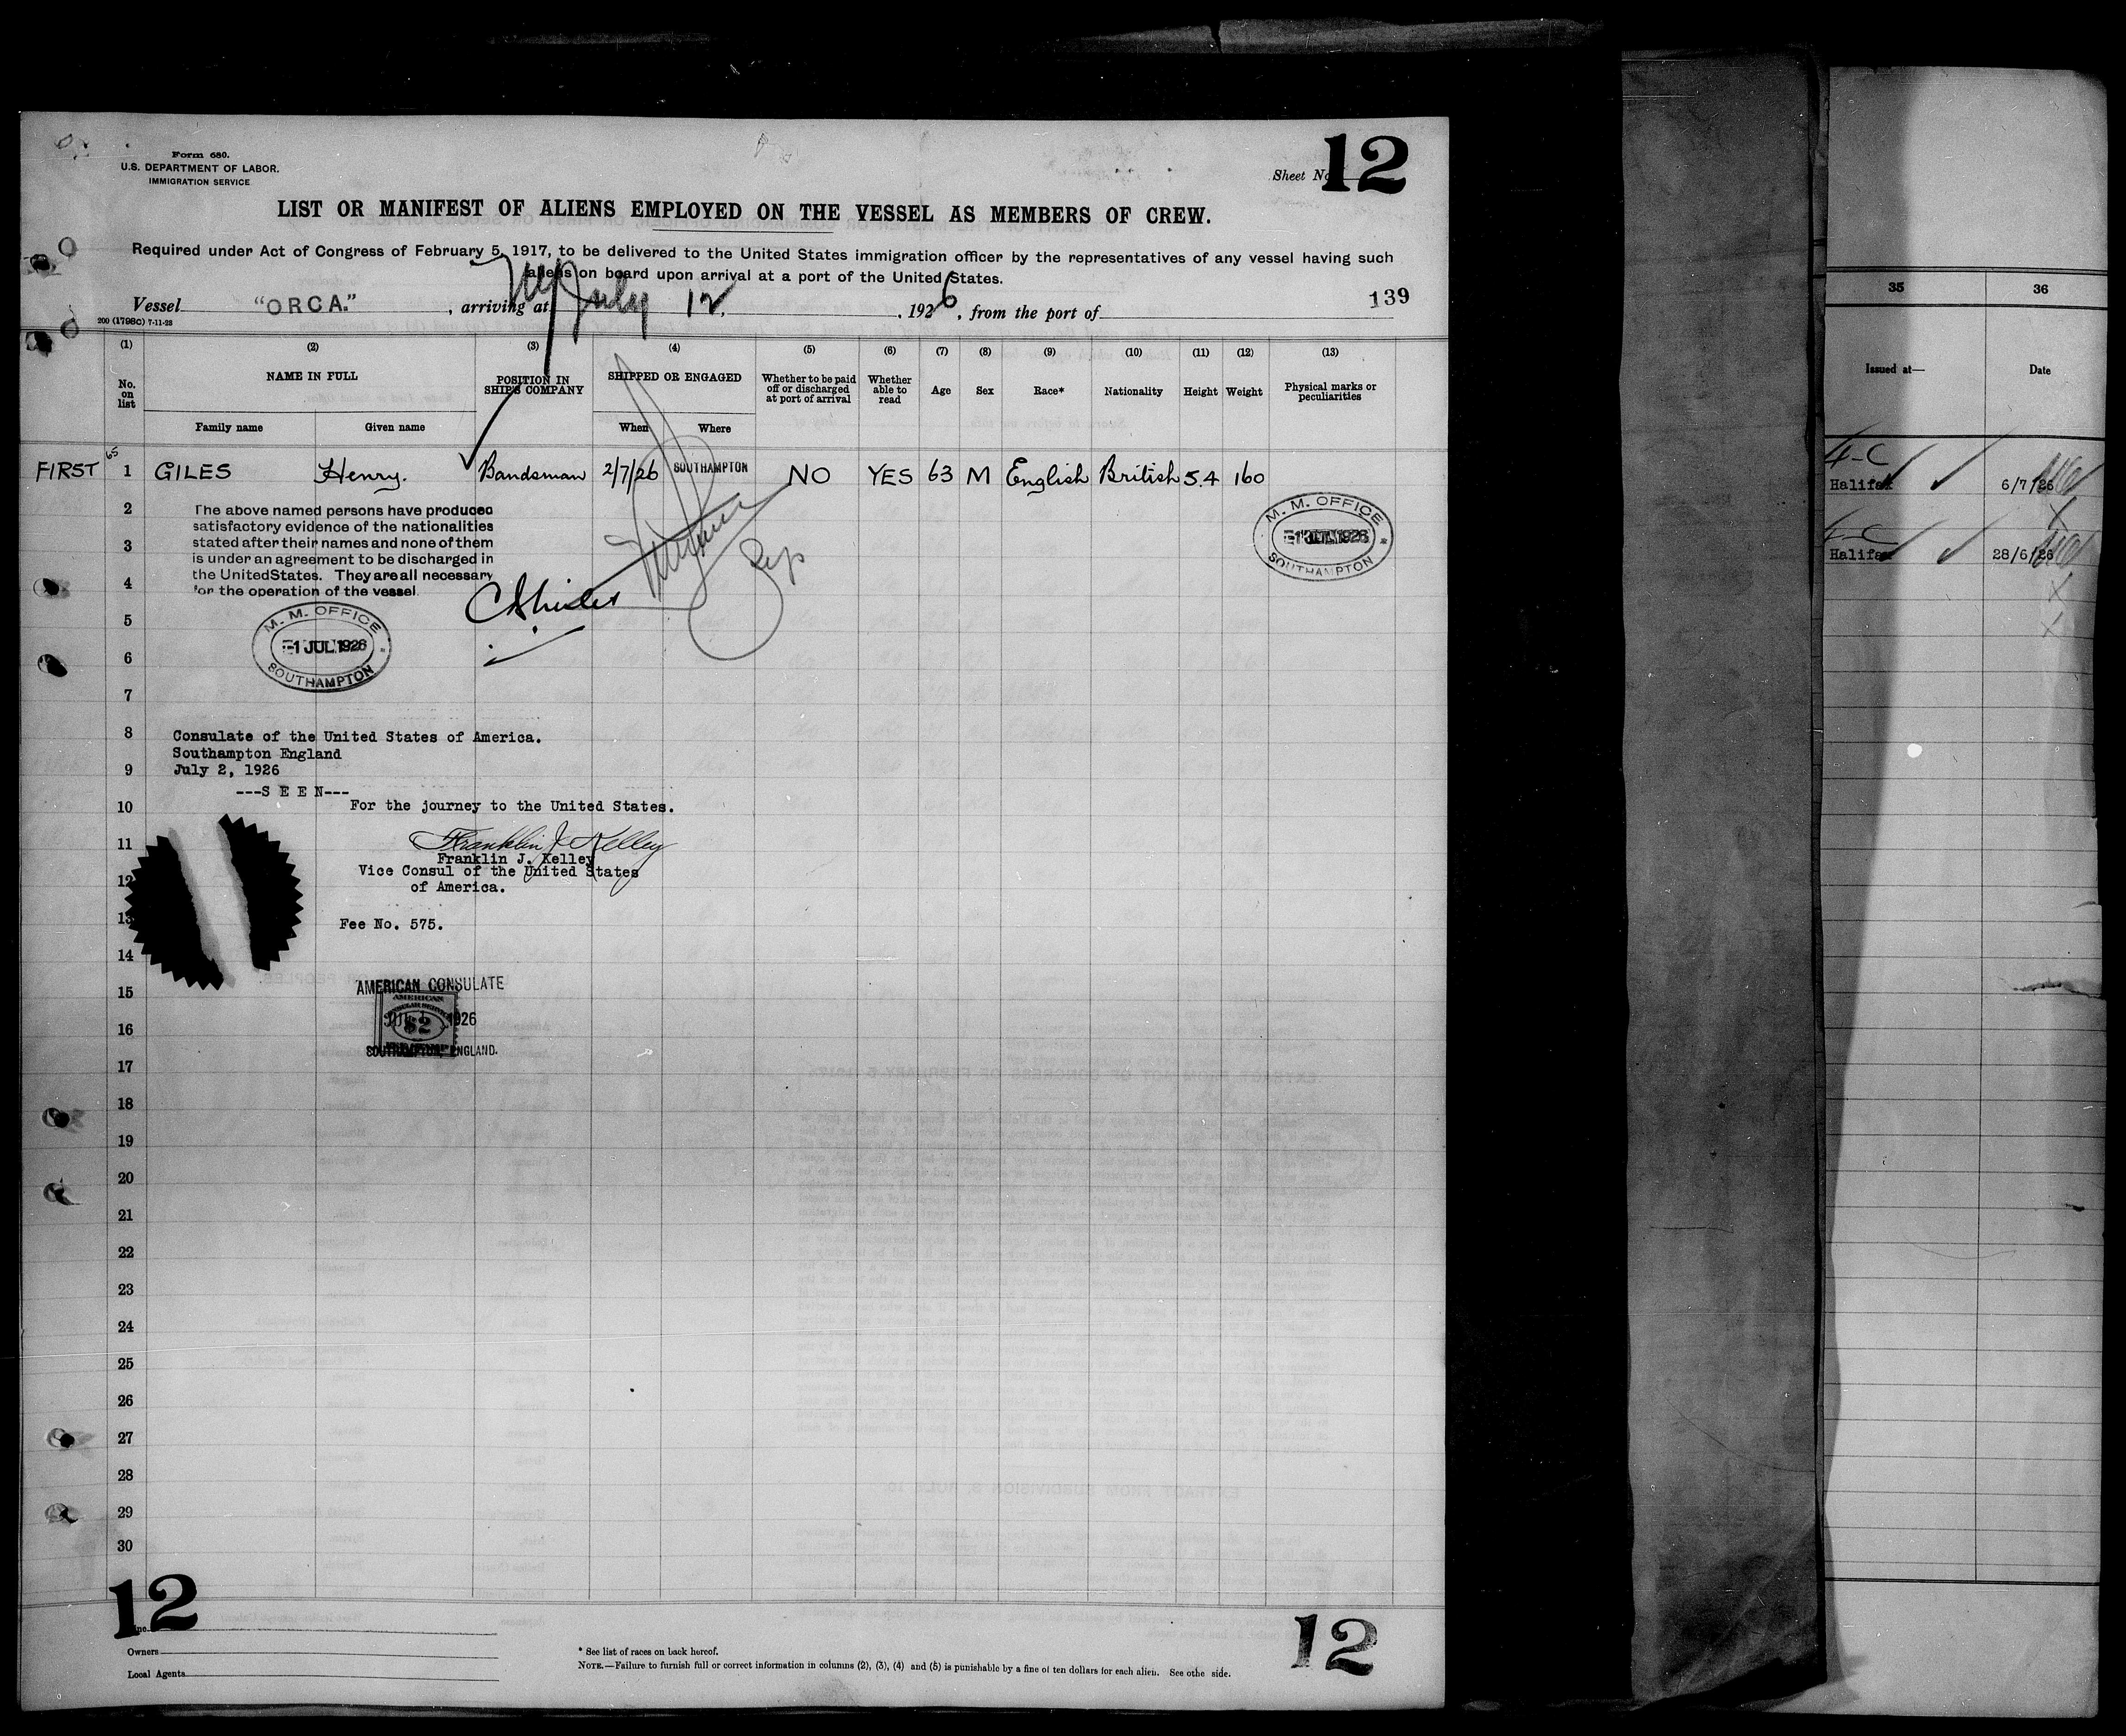 Form 680.
U.S. DEPARTMENT OF LABOR.
IMMIGRATION SERVICE
Sheet No. 12
LIST OR MANIFEST OF ALIENS EMPLOYED ON THE VESSEL AS MEMBERS OF CREW.
Required under Act of Congress of February 5, 1917, to be delivered to the United States immigration officer by the representatives of any vessel having such
aliens on board upon arrival at a port of the United States.
Vessel "ORCA." , arriving at July 12, , 1926, from the port of
139
200 (1798C) 7-11-23
(1) (2) (3) (4) (5) (6) (7) (8) (9) (10) (11) (12) (13)
No. on list
NAME IN FULL
Family name Given name
POSITION IN SHIP'S COMPANY
SHIPPED OR ENGAGED
When Where
Whether to be paid off or discharged at port of arrival
Whether able to read
Age Sex Race* Nationality Height Weight
Physical marks or peculiarities
65
FIRST 1 GILES Henry. Bandsman 2/7/26 SOUTHAMPTON NO YES 63 M English British 5.4 160
The above named persons have produced
satisfactory evidence of the nationalities
stated after their names and none of them
is under an agreement to be discharged in
the United States. They are all necessary
for the operation of the vessel.
M. M. OFFICE
1 JUL 1926
SOUTHAMPTON
M. M. OFFICE
JUL 1926
SOUTHAMPTON
2
3
4
5
6
7
8
9
10
11
12
13
14
15
16
17
18
19
20
21
22
23
24
25
26
27
28
29
30
Consulate of the United States of America.
Southampton England
July 2, 1926
---S E E N---
For the journey to the United States.
Franklin J. Kelley
Franklin J. Kelley
Vice Consul of the United States
of America.
Fee No. 575.
AMERICAN CONSULATE
AMERICAN
$2
JUL 1926
SOUTHAMPTON, ENGLAND.
12
12
Owners
Local Agents
* See list of races on back hereof.
NOTE.—Failure to furnish full or correct information in columns (2), (3), (4) and (5) is punishable by a fine of ten dollars for each alien. See othe side.
35 36
Issued at— Date
4-C
Halifax 6/7/26
4-C
Halifax 28/6/26